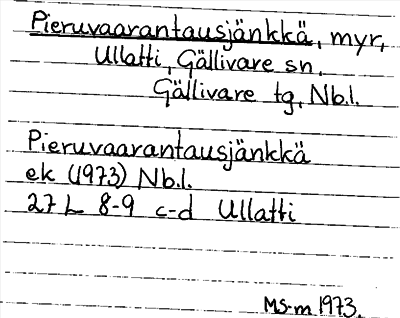 Pieruvaarantausjänkkä, myr,
Ullatti, Gällivare sn.
Gällivare tg, Nb.l.
Pieruvaarantausjänkkä
ek (1973) Nb.l.
27 L 8-9 c-d Ullatti
MS-m 1973.